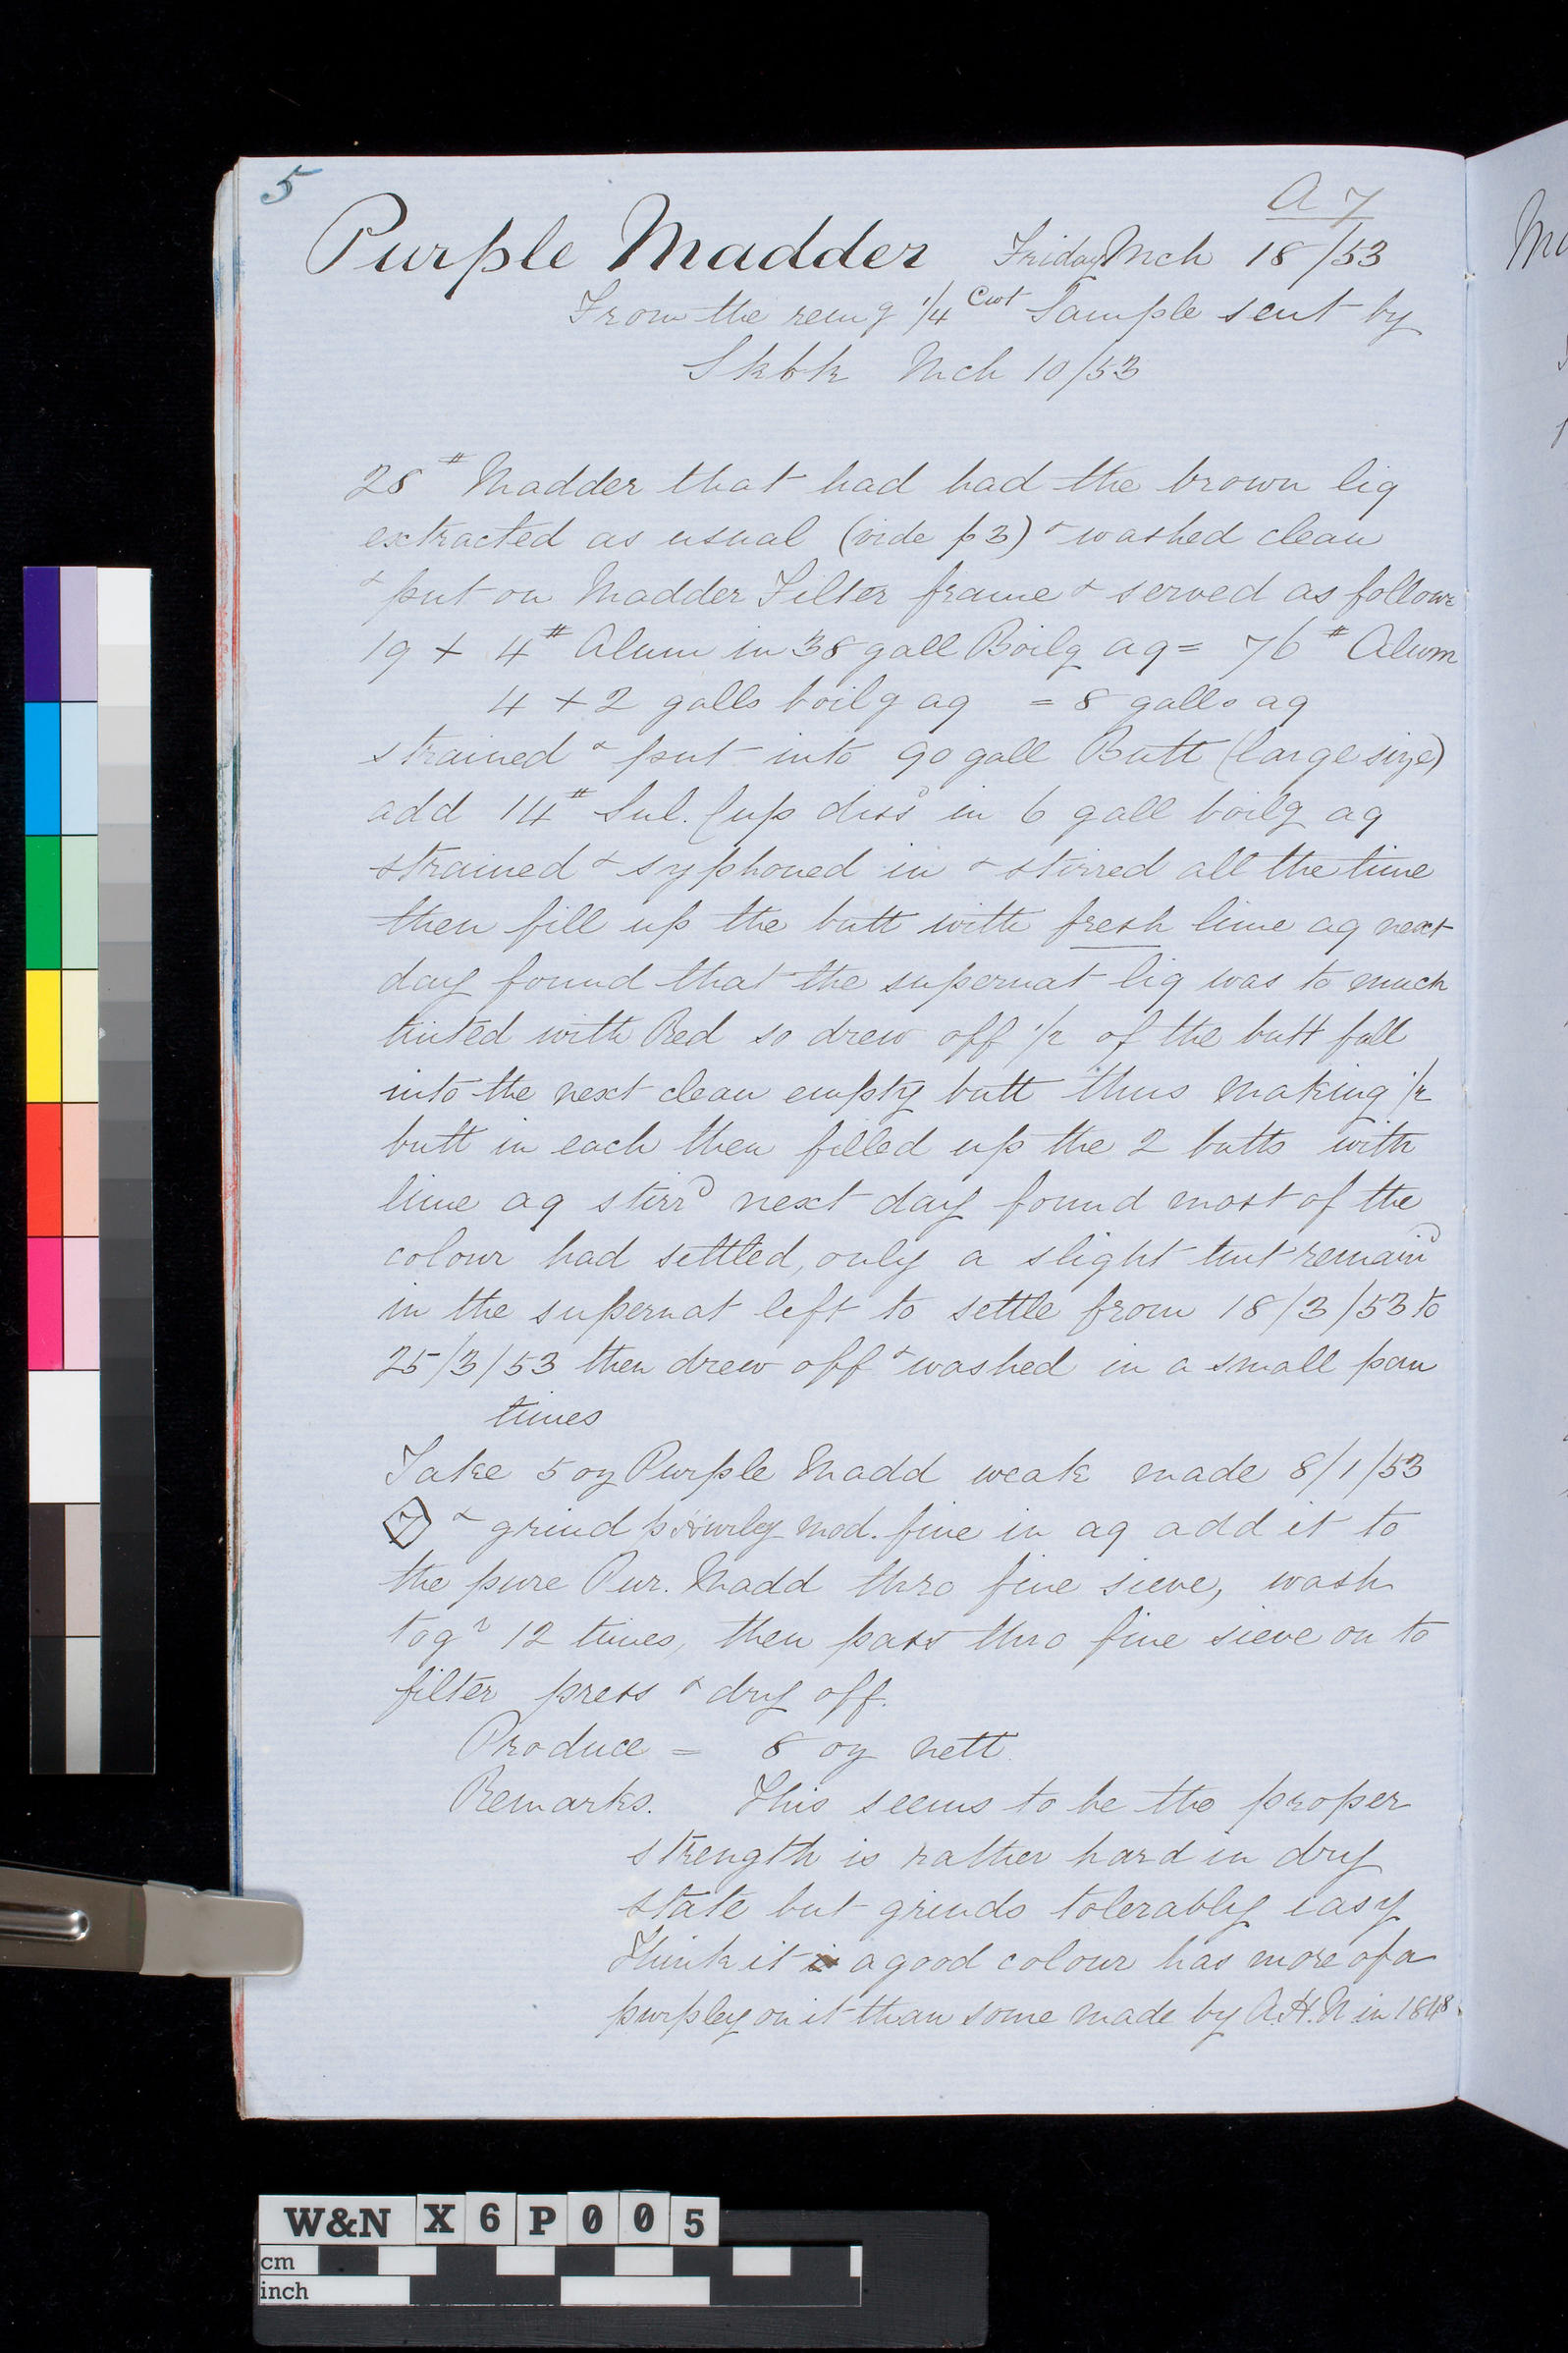 5
A 7
Purple Madder Friday Mch 18/53
From the remg 1/4 Cwt Sample sent by
Skbk Mch 10/53
28# Madder that had had the brown liq
extracted as usual (vide p3) & washed clean
& put on Madder Filter frame & served as follows
19 + 4# Alum in 38 gall Boilg aq = 76# Alum
4 + 2 galls boilg aq = 8 galls aq
strained & put into 90 gall Butt (large size)
add 14# Sul. Cup dissd in 6 gall boilg aq
strained & syphoned in & stirred all the time
then fill up the butt with fresh lime aq next
day found that the supernat liq was to much
tinted with Red so drew off 1/2 of the butt full
into the next clean empty butt thus making 1/2
butt in each then filled up the 2 butts with
lime aq stirrd next day found most of the
colour had settled, only a slight tint remaind
in the supernat left to settle from 18/3/53 to
25/3/53 then drew off & washed in a small pan
times
Take 5 oz Purple Madd weak made 8/1/53
7 & grind mod. fine in aq add it to
the pure Pur. Madd thro fine sieve, wash
togr 12 times, then pass thro fine sieve on to
filter press & dry off.
Produce = 8 oz nett.
Remarks. This seems to be the proper
strength is rather hard in dry
state but grinds tolerably easy
Think it is a good colour has more of a
purpley on it than some made by A.H.N in 1848.
W&N X6P005
cm
inch